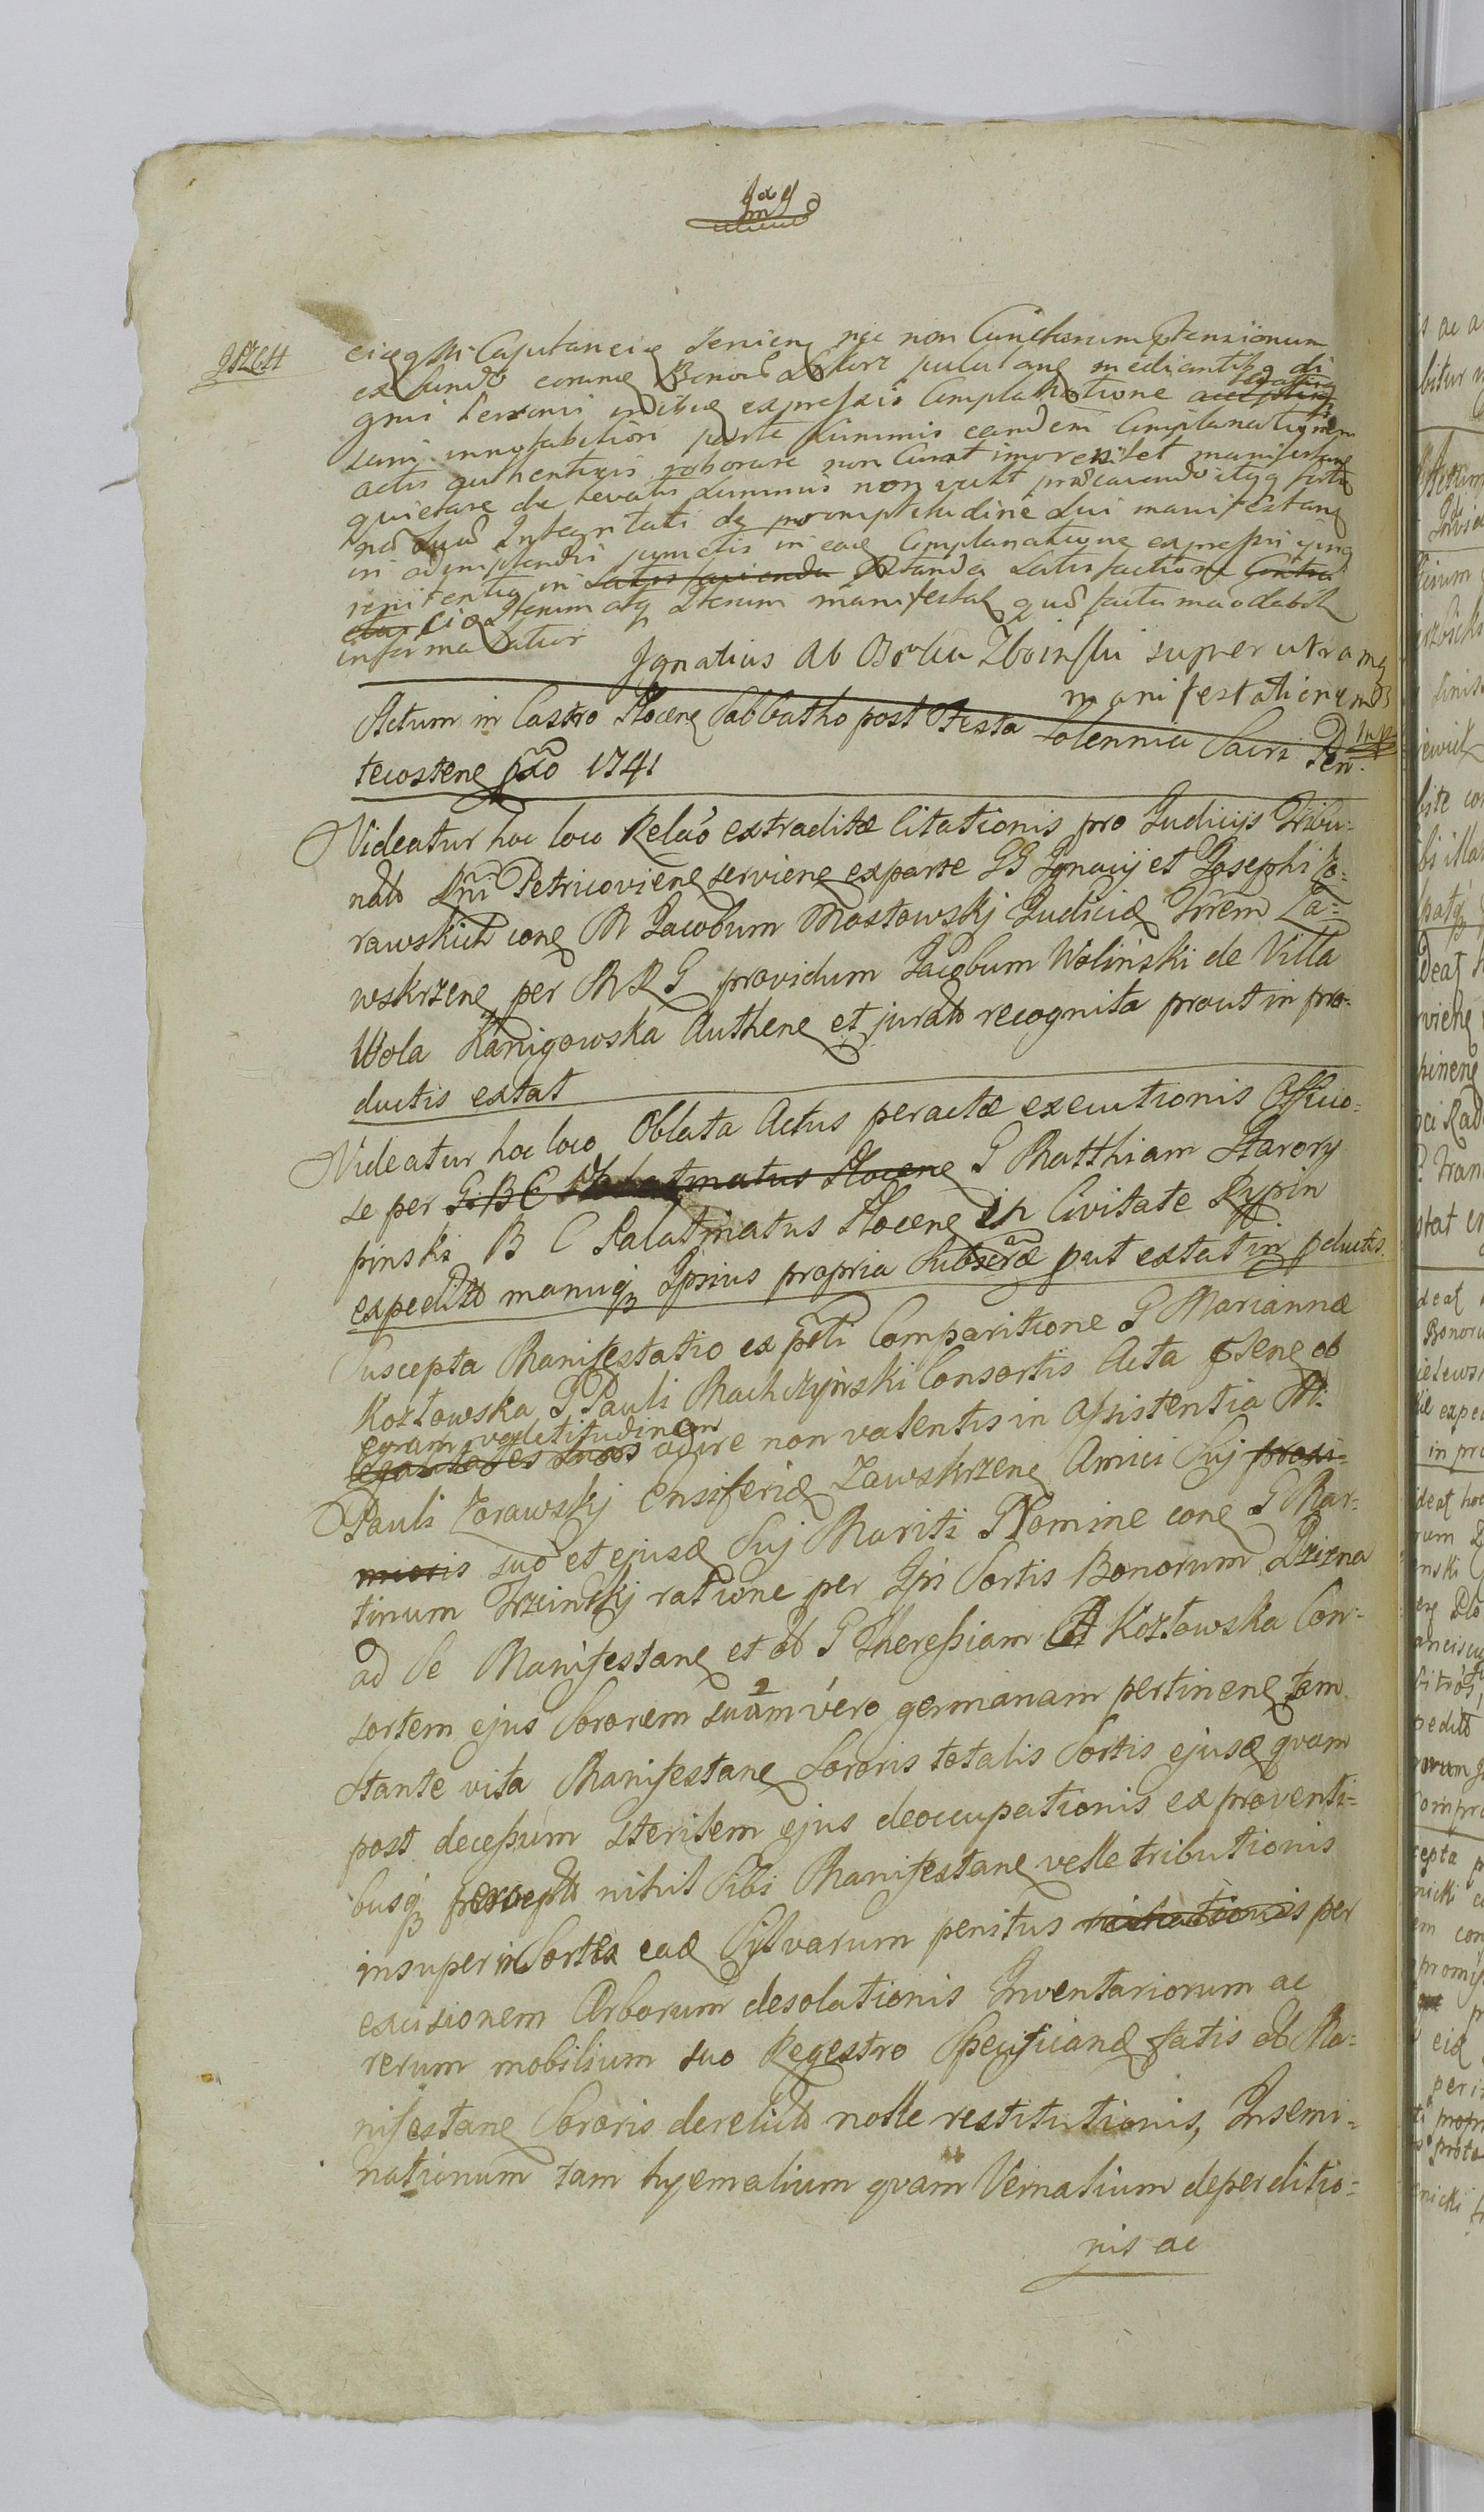 eidq Mi Capitaneiq Servieng nec non Cunctarum Ptensionum
ex fundo eorung Bonor pululang mediantibq di
gnis Personis inibiq expressis Complanatione
levatisq
sum innotabiliori parte summis eandem Complanationem
actis authenticis roborare non Curat imo renitet manifestang
quietare de levatis summis non vult præcavendo itaq
Integritati de promptitudine sui manifestang
in adimplendis punctis in eadq Complanatione expressis
renitentia in satisfacienda Pstanda satisfactione Contra
iterum atq iterum manifestat quod
informabitur
Ignatius ab Zboinski super utramq
manifestationem
mp
Actum in Castro Ploceng Sabbatho post Festa Solennia Sacri Pen-
tecosteng pxo 1741
Videatur hoc loco Relao extraditæ Citationis pro Judicijs Tribu-
nalb Rni Petricovieng servieng ex parte GG Ignacij et Josephi Zo-
rawskich cong M Jacobum Mostowskj Judicid Trrem Za-
wskrzeng per M R G providum Jacobum Wolinski de Villa
Wola Kanigowska Autheng et jurato recognita prout in pro-
ductis extat
Videatur hoc loco Oblata Actus peractæ executionis Officio-
se per G B C Palatinatus Ploceng G Matthiam Starory
pinski B C Palatinatus Ploceng in Civitate Rypin
expedito manuq Ipsius propria Subscræ put extat in pductis.
Suscepta Manifestatio ex psti Comparitione G Mariannæ
Kozłowska G Pauli Machczyński Consortis Acta pseng ob
egram valetitudinem
suos adire non valentis in assistentia M.
Pauli Zorawskj Ensiferid Zawskrzeng Amici Suj proxi-
mioris suo et ejusd Suj Mariti Nomine cong G Mar-
tinum Trzcinskj ratione per Ips Sortis Bonorum Dzizna
ad Se Manifestang et ab G Theressiam A Kozłowska Con-
sortem ejus Sororem suam 2 vero germanam pertineng tam
Stante vita Manifestang Sororis totalis Sortis ejusd qvam
post decessum Steritem ejus deoccupationis ex proventi-
busq nihil Sibi Manifestang velle tributionis
insuper in Sortes ead Silvarum penitus per
excisionem Arborum desolationis Inventariorum ac
rerum mobilium suo Regestro Specificand satis ab Ma-
nifestang Sororis derelicto nolle restitutionis, Insemi-
nationum tam hyemalium qvam Vernalium deperditio-
nis ac